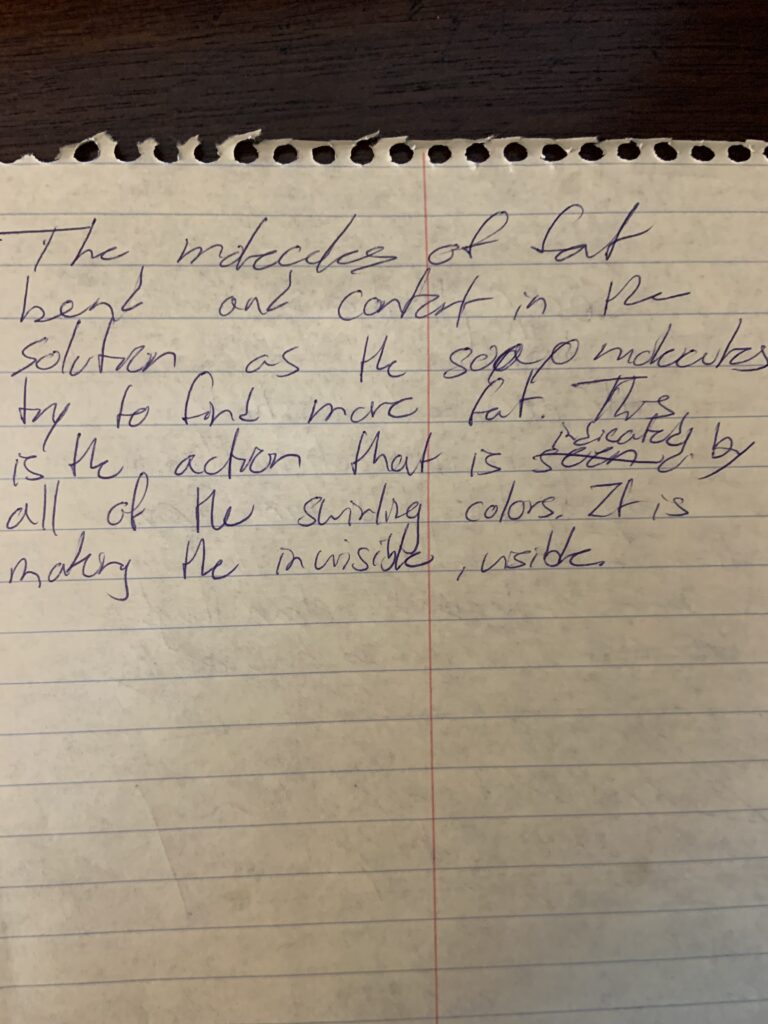 The molecules of fat
bend and contort in the
solution as the soap molecules
try to find more fat. This
is the action that is indicated by
all of the swirling colors. It is
making the invisible, visible.